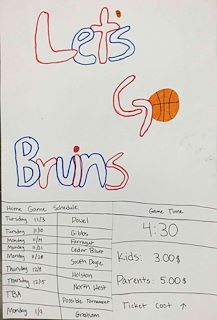 Let's
Go
Bruins
Home Game Schedule:
Tuesday 11/3 Powel
Tuesday 11/10 Gibbs
Monday 11/14 Farragut
Monday 11/21 Cedar Bluff
Monday 11/28 South Doyle
Thursday 12/8 Holston
Thursday 12/15 North West
TBA Possible Tornament
Monday 1/2 Gresham
Game Time
4:30
Kids: 3.00$
Parents: 5.00$
Ticket Cost ↑